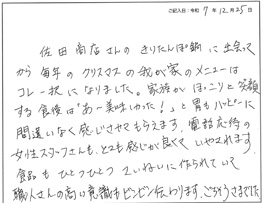 ご記入日:令和 7年 12月 25日
佐田商店さんの きりたんぽ鍋に出会って
から 毎年の クリスマスの我が家のメニューは
コレ一択になりました。家族がほっこりと笑顔
する食後は「あ〜美味しかった!」と胃もハッピーに
間違いなく感じさせてもらえます。電話応対の
女性スタッフさんも、とても感じが良くて いやされます。
食品も ひとつひとつ ていねいに作られていて
職人さんの高い意識もビンビン伝わります。ごちそうさまでした